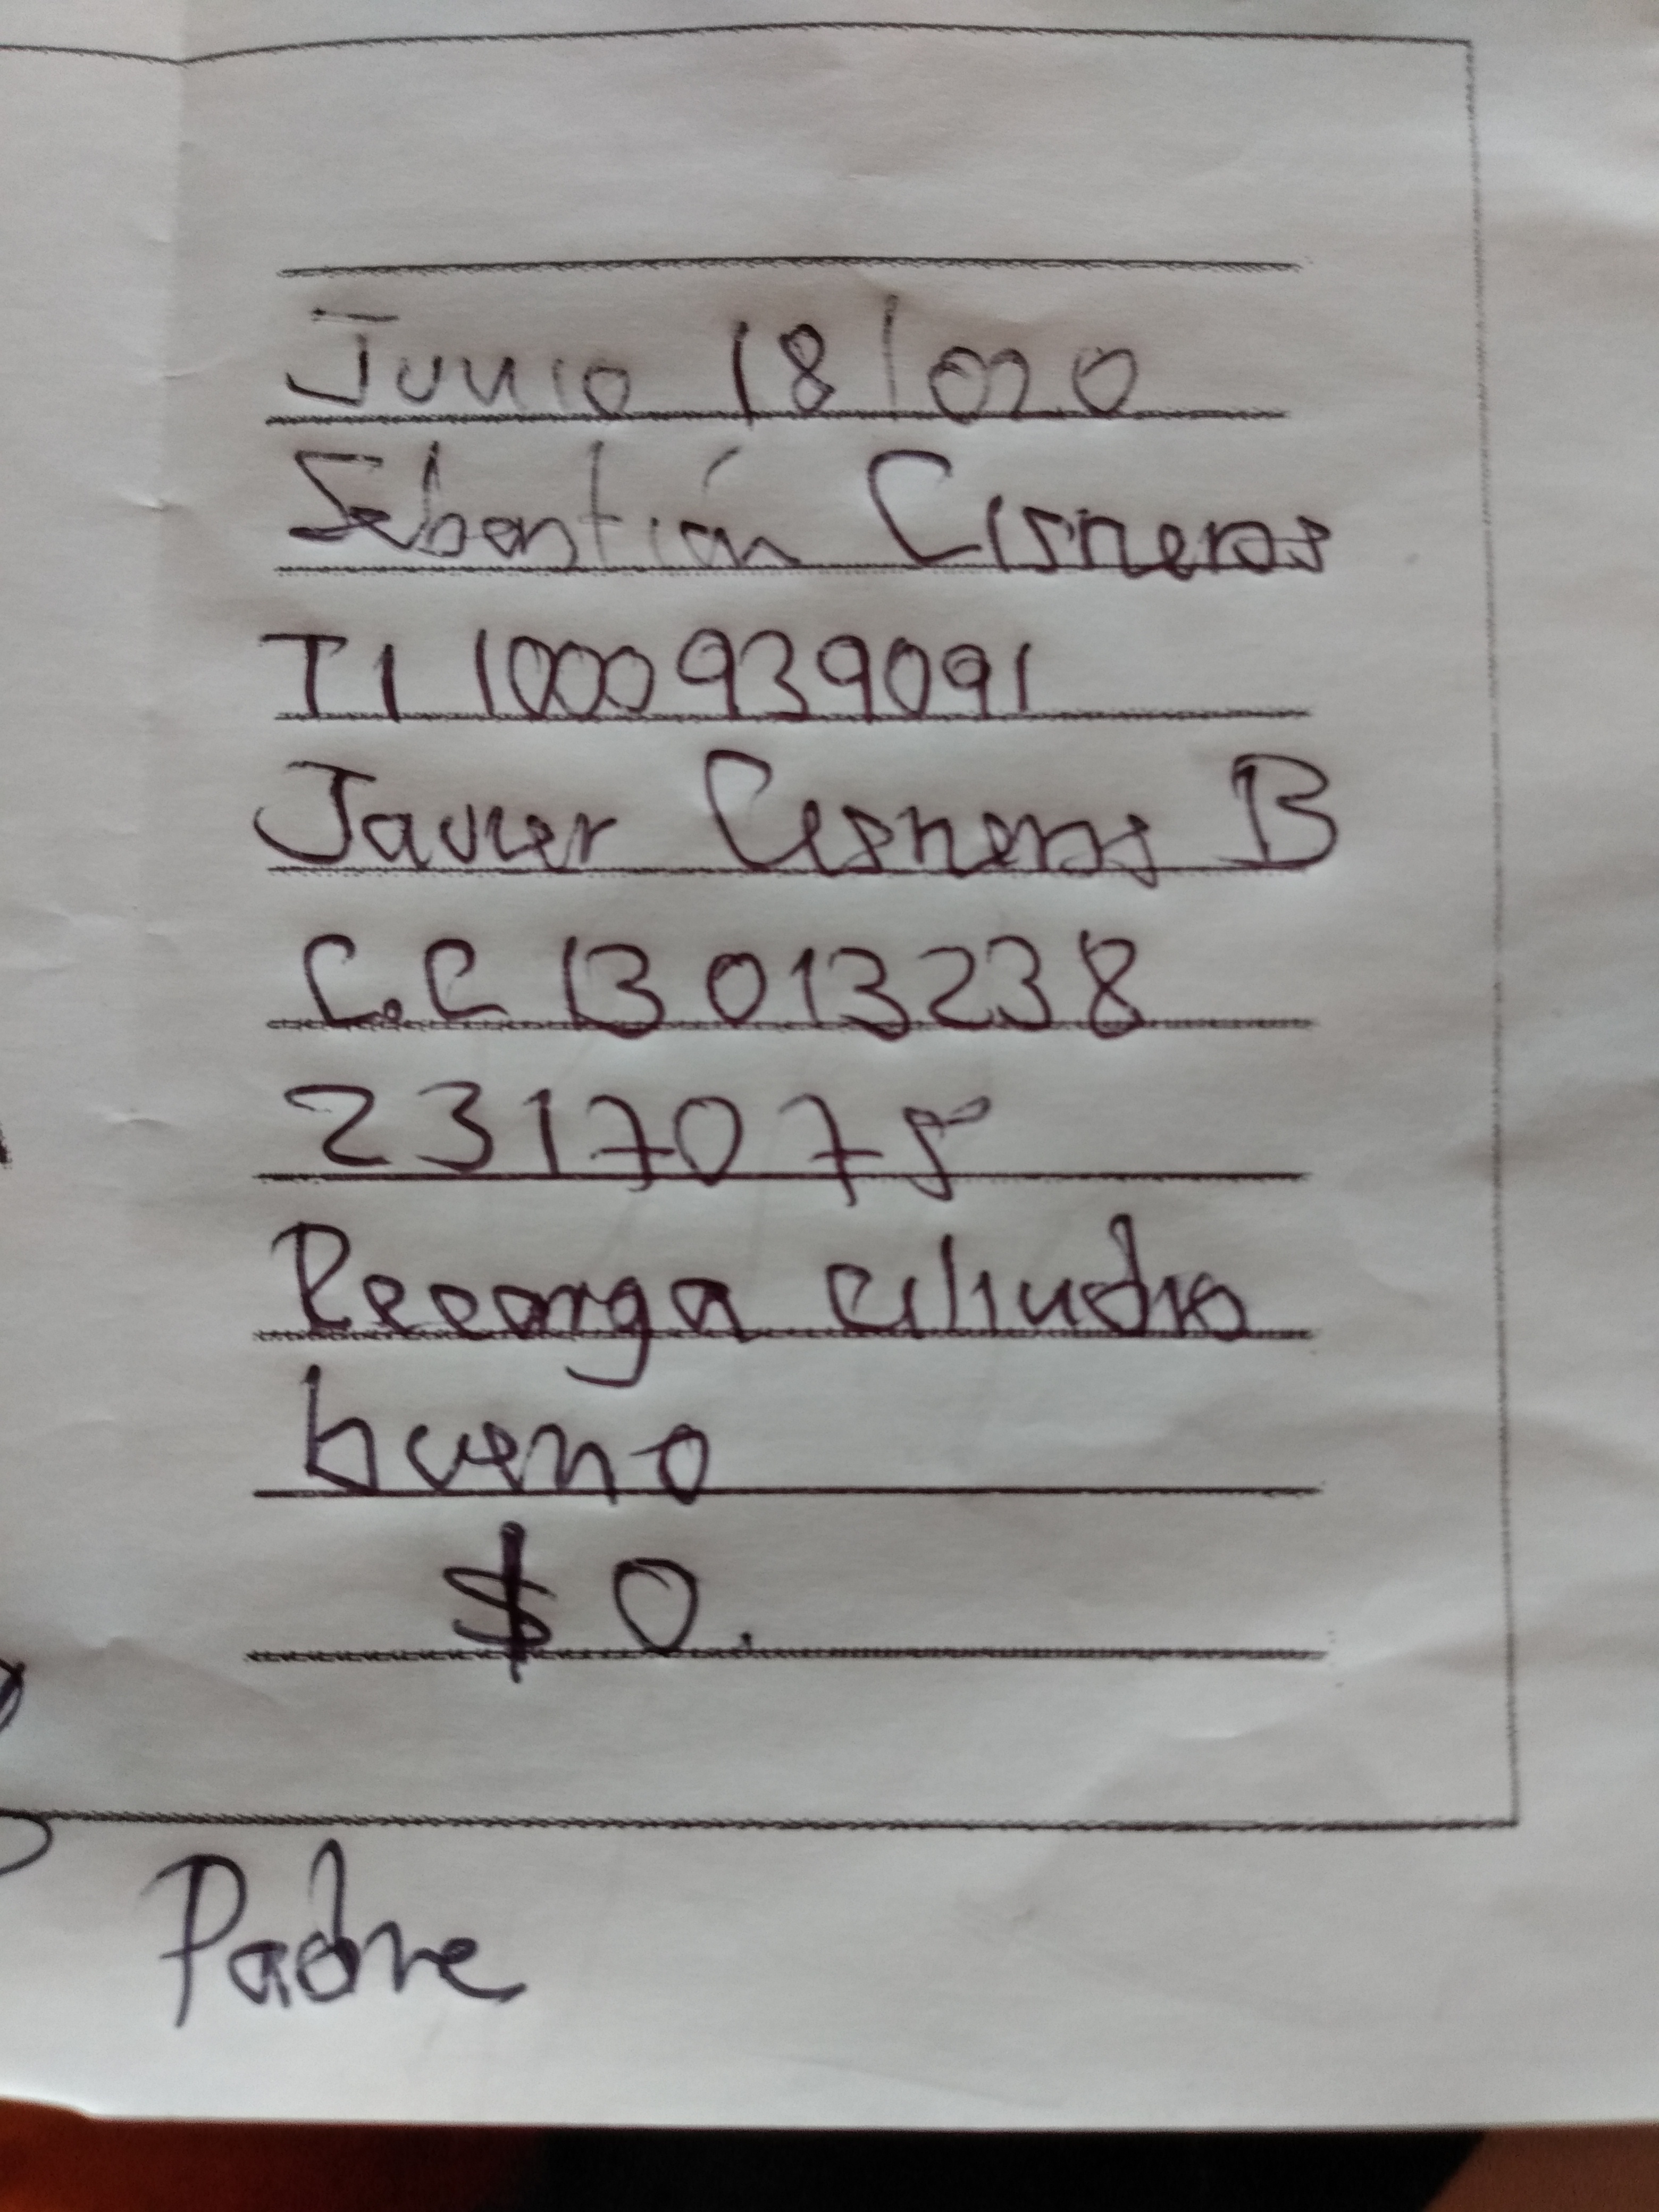 Junio 18/020
Sebastián Cisneros
TI 1000939091
Javier Cisneros B
C.C 13013238
2317078
Recarga cilindro
bueno
$ 0.
Padre